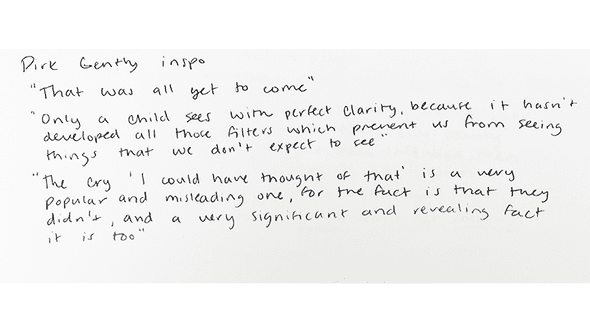 Dirk Gently inspo
"That was all yet to come"
"Only a child sees with perfect clarity, because it hasn't
developed all those filters which prevent us from seeing
things that we don't expect to see"
"The cry 'I could have thought of that' is a very
popular and misleading one, for the fact is that they
didn't, and a very significant and revealing fact
it is too"